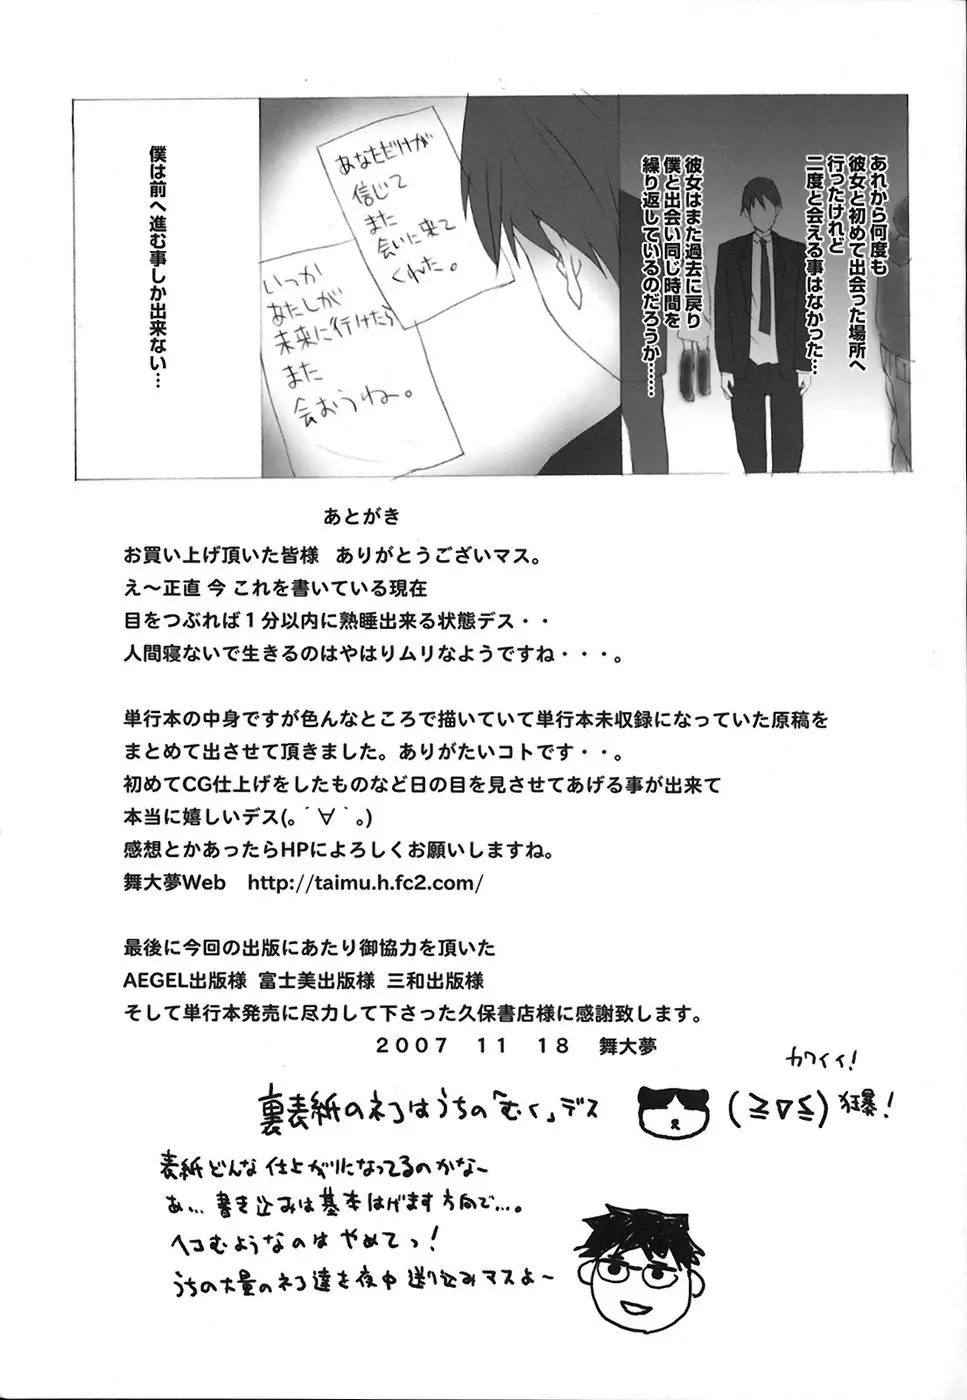 あれから何度も
彼女と初めて出会った場所へ
行ったけれど
二度と会える事はなかった…
彼女はまた過去に戻り
僕と出会い同じ時間を
繰り返しているのだろうか……
あなただけが
信じて
また
会いに来て
くれた。
いつか
あたしが
未来に行けたら
また
会おうね。
僕は前へ進む事しか出来ない…
あとがき
お買い上げ頂いた皆様　ありがとうございマス。
え〜正直 今 これを書いている現在
目をつぶれば１分以内に熟睡出来る状態デス・・
人間寝ないで生きるのはやはりムリなようですね・・・。
単行本の中身ですが色んなところで描いていて単行本未収録になっていた原稿を
まとめて出させて頂きました。ありがたいコトです・・。
初めてCG仕上げをしたものなど日の目を見させてあげる事が出来て
本当に嬉しいデス(。´∀｀。)
感想とかあったらHPによろしくお願いしますね。
舞大夢Web　http://taimu.h.fc2.com/
最後に今回の出版にあたり御協力を頂いた
AEGEL出版様 富士美出版様 三和出版様
そして単行本発売に尽力して下さった久保書店様に感謝致します。
２００７　１１　１８　舞大夢
カワイイ！
裏表紙のネコはうちの「むく」デス
(≧∇≦) 狂暴！
表紙どんな仕上がりになってるのかな〜
あ… 書き込みは基本はげます方向で…。
ヘコむようなのは やめてっ！
うちの大量のネコ達を夜中送り込みマスよ〜